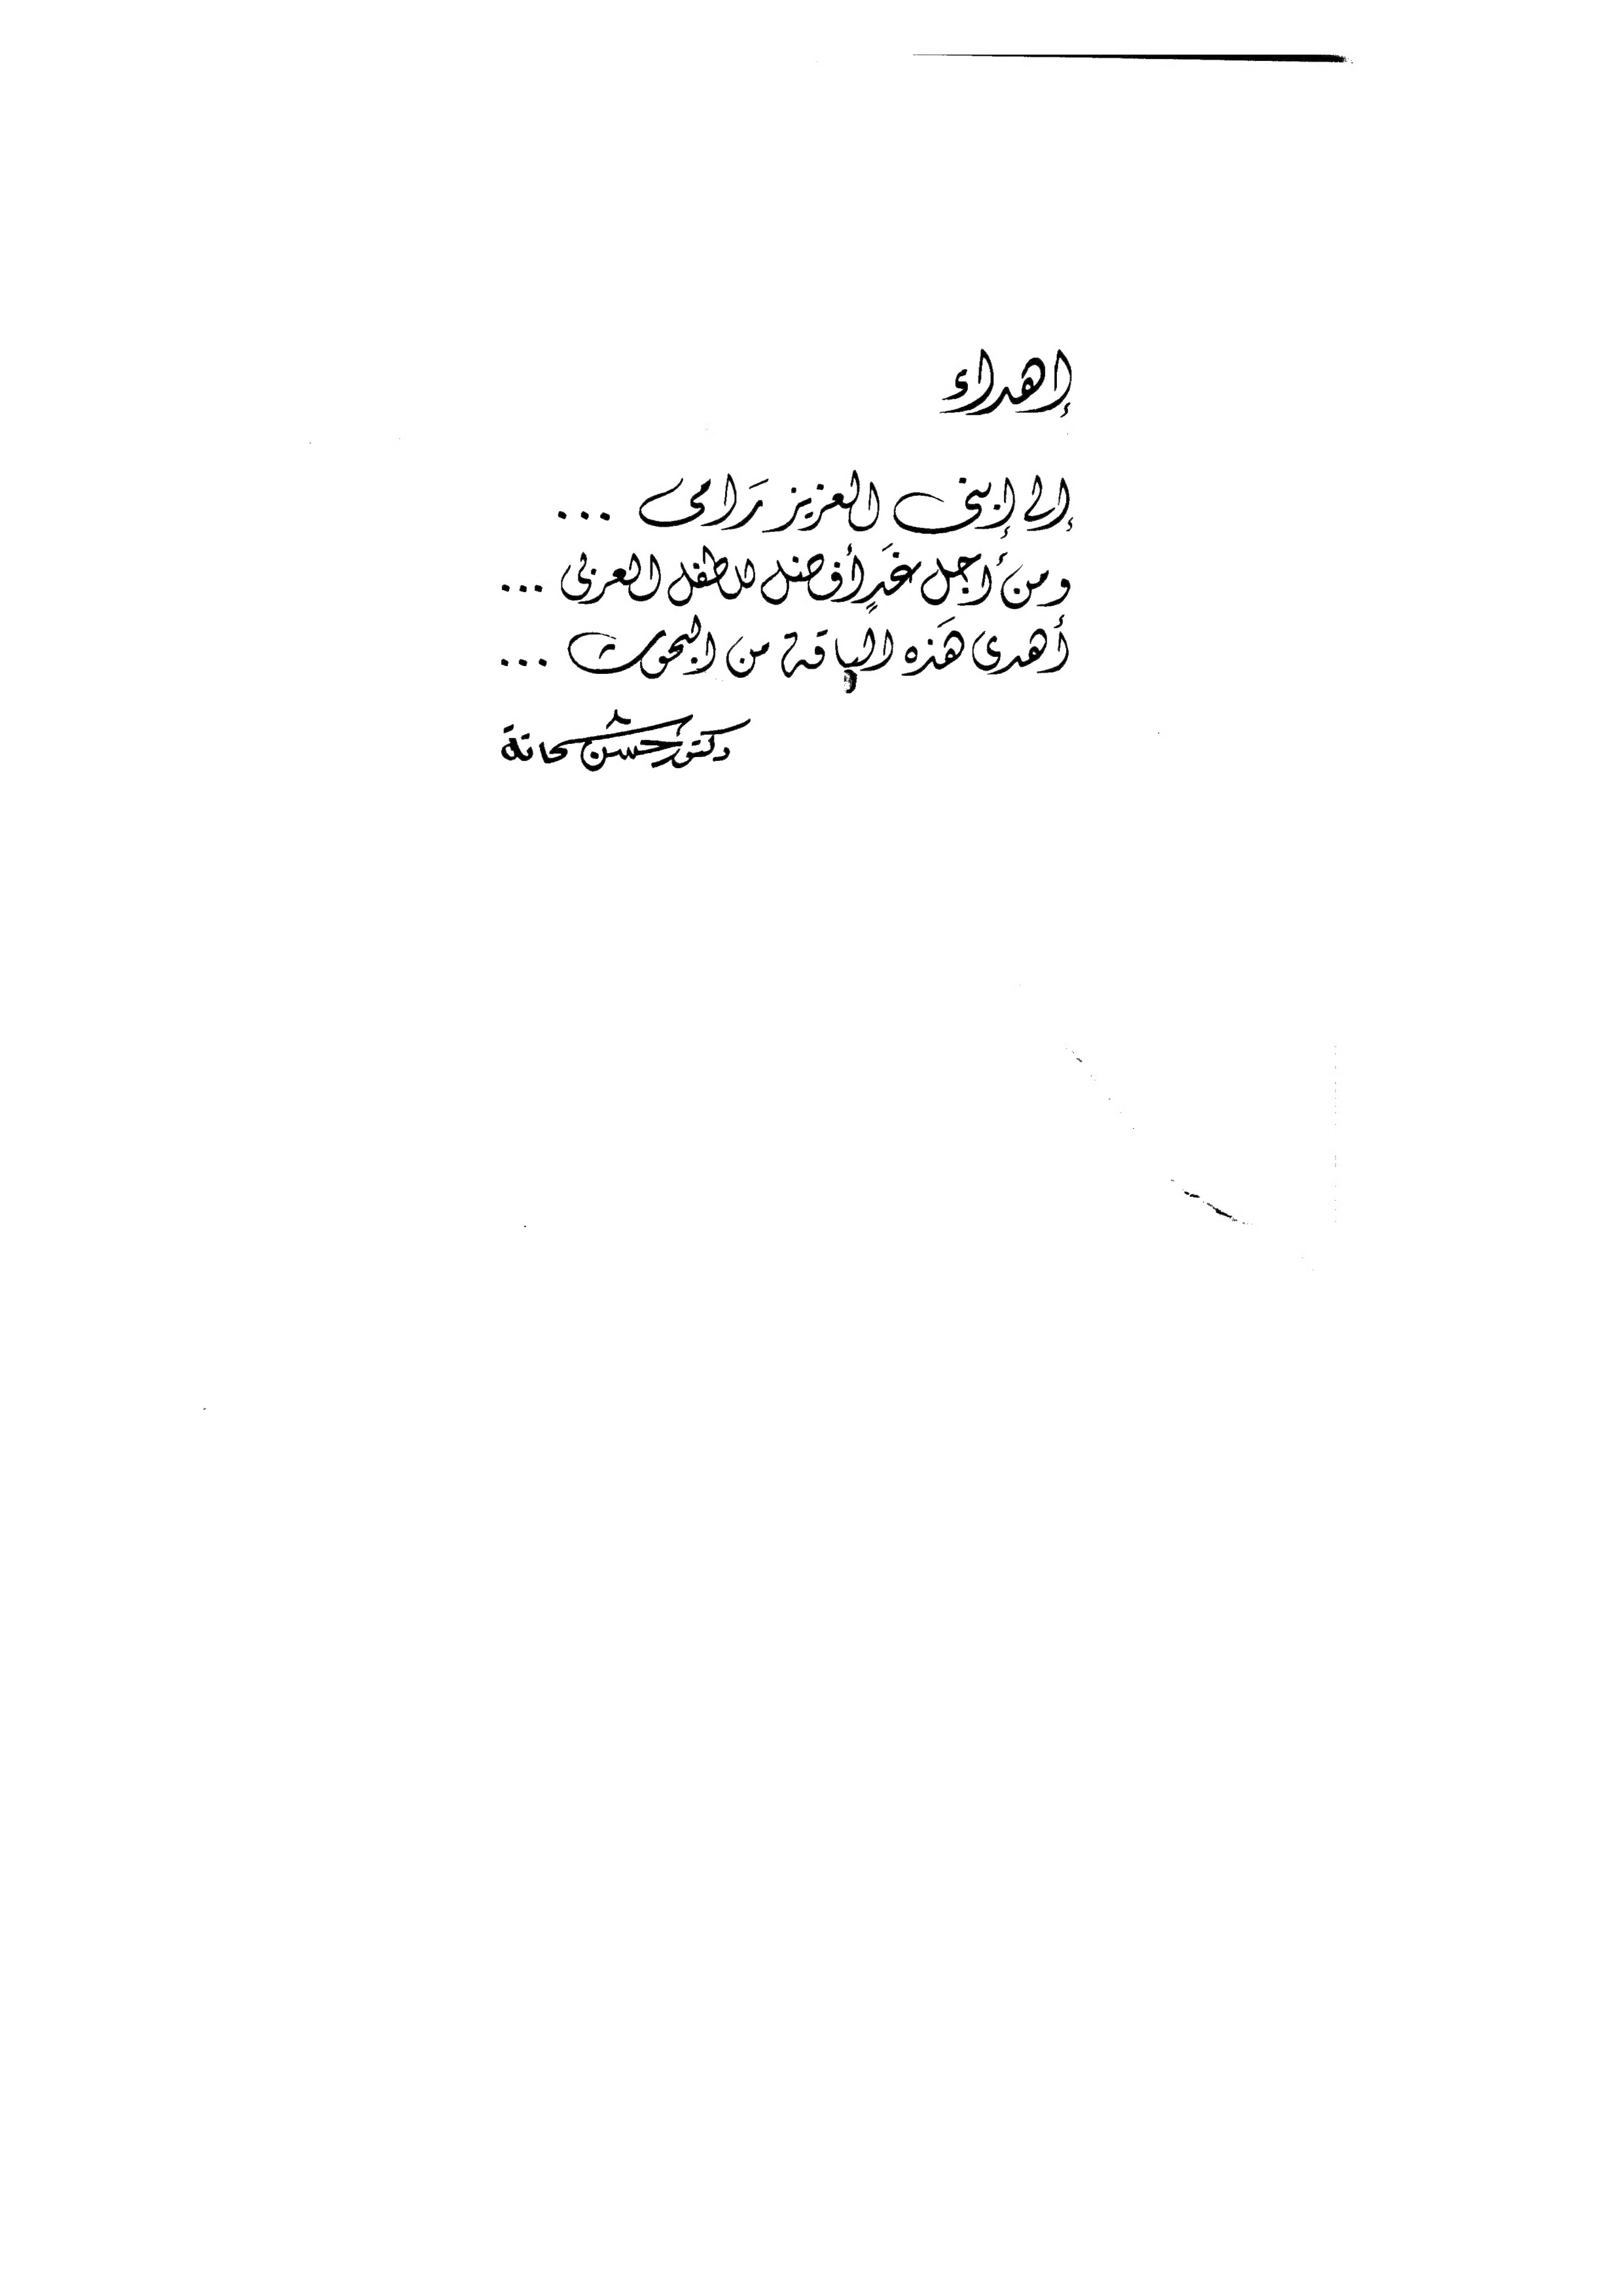 إهداء
إلى إبنى العزيز رَامى ...
ومن أَجل غَدٍ أفضل للطفل العربى ...
أَهدى هَذه الباقة من البحوث ...
دكتور حسن شحاتة